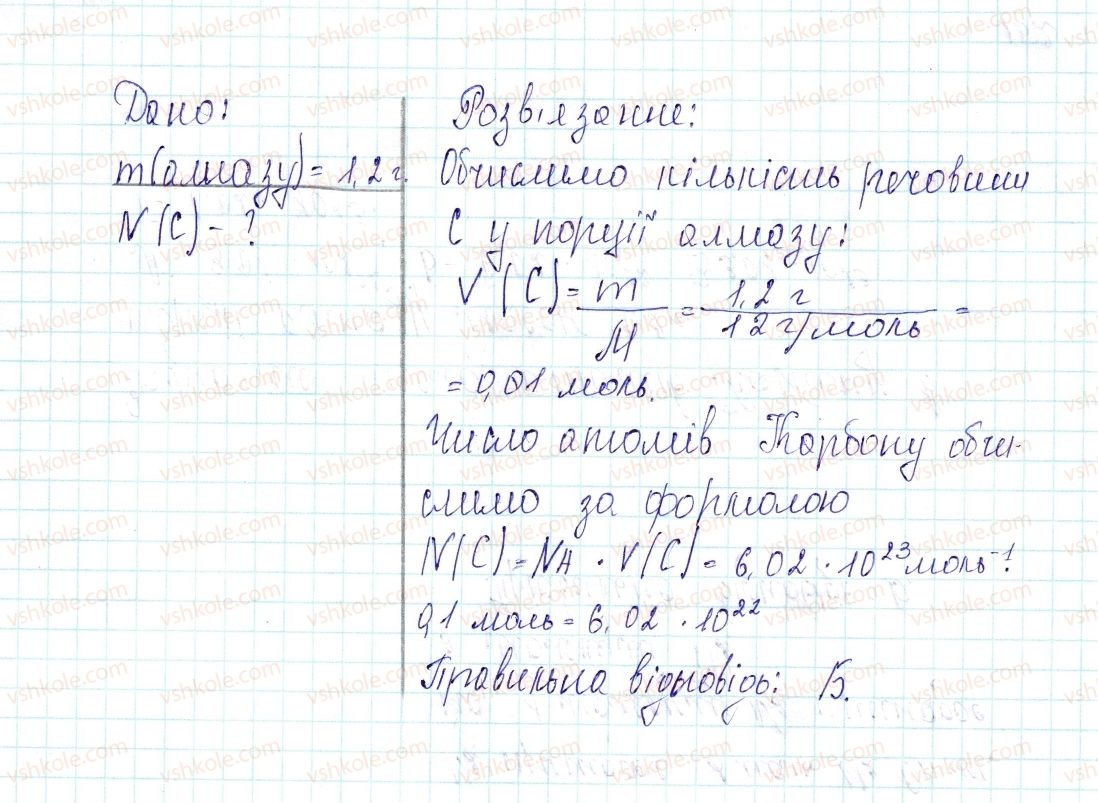 Дано:
m(алмазу) = 1,2 г.
N(C) - ?
Розв'язання:
Обчислимо кількість речовини
С у порції алмазу:
V(C) = m/M = 1,2 г / 12 г/моль =
= 0,01 моль.
Число атомів Карбону обчи-
слимо за формолою
N(C) = NA · V(C) = 6,02 · 10²³ моль⁻¹ ·
0,1 моль = 6,02 · 10²²
Правильна відповідь: Б.
vshkole.com